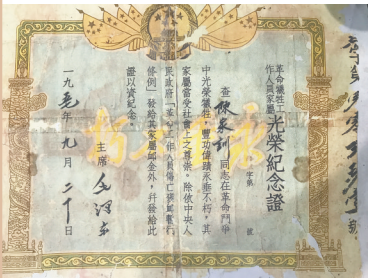 革命犧牲工
作人員家屬
光榮紀念證
字第 號
查陳 同志在革命鬥爭
中光榮犧牲,豐功偉蹟永垂不朽,其
家屬當受社會上之尊崇。除依中央人
民政府「革命工作人員傷亡褒卹暫行
條例」發給其家屬卹金外,幷發給此
證以資紀念。
主席 毛澤东
一九五 年九月二十日